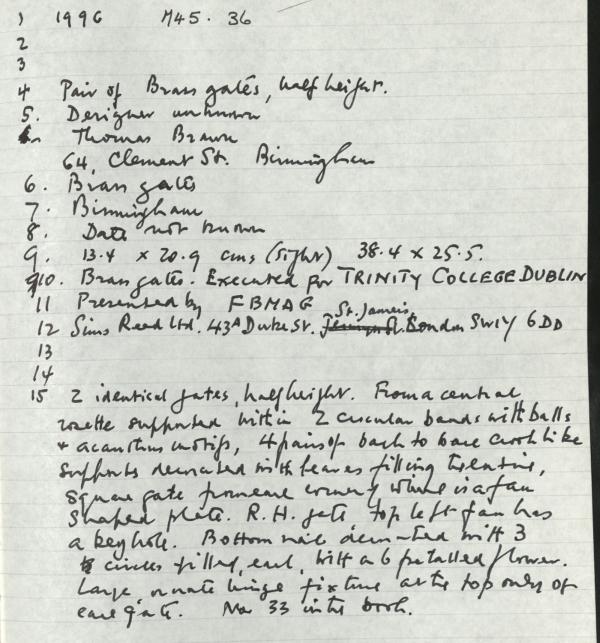 1 1996 M45.36
2
3
4 Pair of Brass gates, half height.
5. Designer unknown
Thomas Brawn
64, Clement St. Birmingham
6. Brass gates
7. Birmingham
8. Date not known
9. 13.4 x 20.9 cms (sight) 38.4 x 25.5.
10. Brass gates. Executed for TRINITY COLLEGE DUBLIN
11 Presented by FBMAG
St. James's
12 Sims Reed Ltd. 43A Duke St. London SW1Y 6DD
13
14
15 2 identical gates, half height. From a central
rosette supported within 2 circular bands with balls
+ acanthus motifs, 4 pairs of back to back crook like
supports decorated with leaves filling the entire,
square gate from each corner of which is a fan
shaped plate. R.H. gate top left fan has
a keyhole. Bottom rail decorated with 3
circles filled, each, with a 6 petalled flower.
Large, ornate hinge fixture at the top only of
each gate. No 33 in the book.